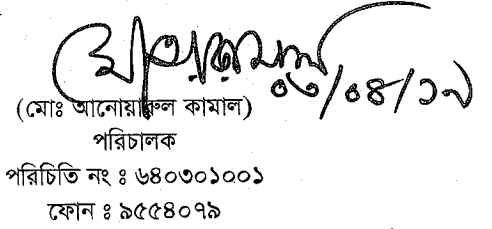 ০৩/০৪/১৯
(মোঃ আনোয়ারুল কামাল)
পরিচালক
পরিচিতি নং ঃ ৬৪০৩০১০০১
ফোন ঃ ৯৫৫৪০৭৯